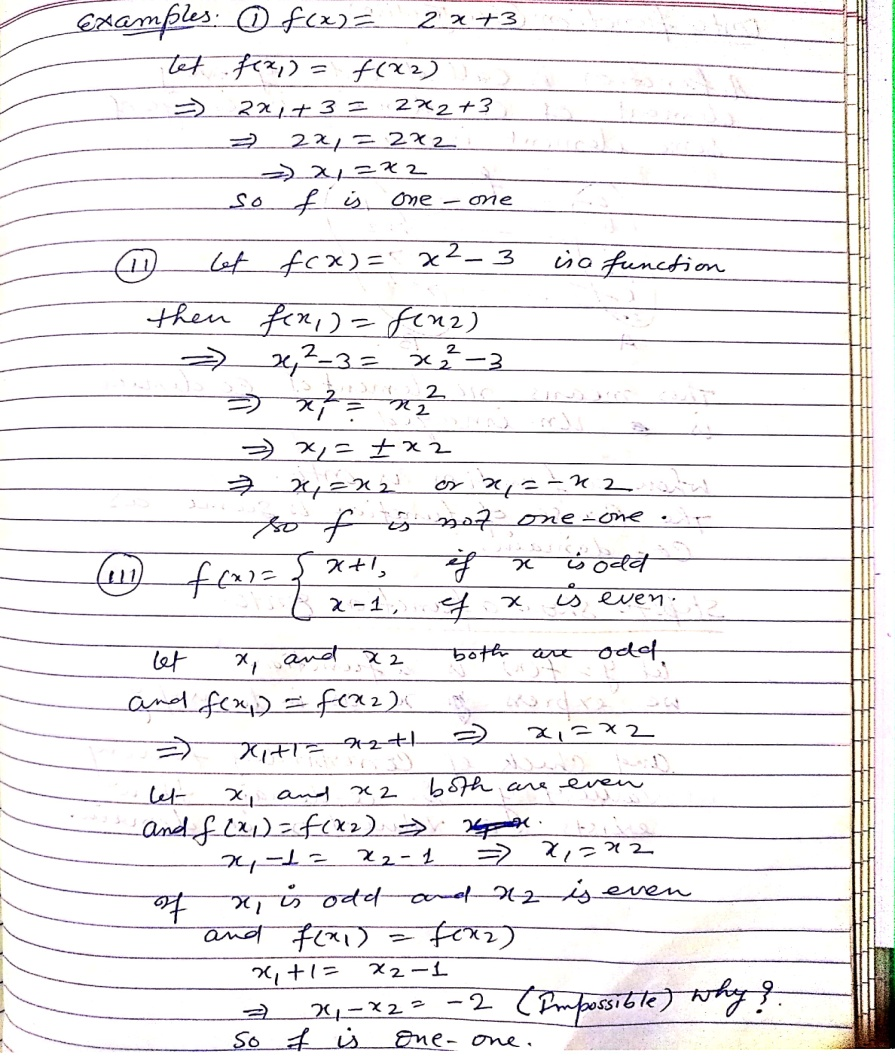 Examples: ① f(x) = 2x+3
let f(x₁) = f(x₂)
⇒ 2x₁+3 = 2x₂+3
⇒ 2x₁ = 2x₂
⇒ x₁ = x₂
so f is one-one
(ii) let f(x) = x²-3 is a function
then f(x₁) = f(x₂)
⇒ x₁²-3 = x₂²-3
⇒ x₁² = x₂²
⇒ x₁ = ±x₂
⇒ x₁ = x₂ or x₁ = -x₂
so f is not one-one.
(iii) f(x) = { x+1, if x is odd
x-1, if x is even.
let x₁ and x₂ both are odd.
and f(x₁) = f(x₂)
⇒ x₁+1 = x₂+1 ⇒ x₁=x₂
let x₁ and x₂ both are even
and f(x₁) = f(x₂) ⇒
x₁-1 = x₂-1 ⇒ x₁=x₂
If x₁ is odd and x₂ is even
and f(x₁) = f(x₂)
x₁+1 = x₂-1
⇒ x₁-x₂ = -2 (Impossible) why?.
So f is one-one.